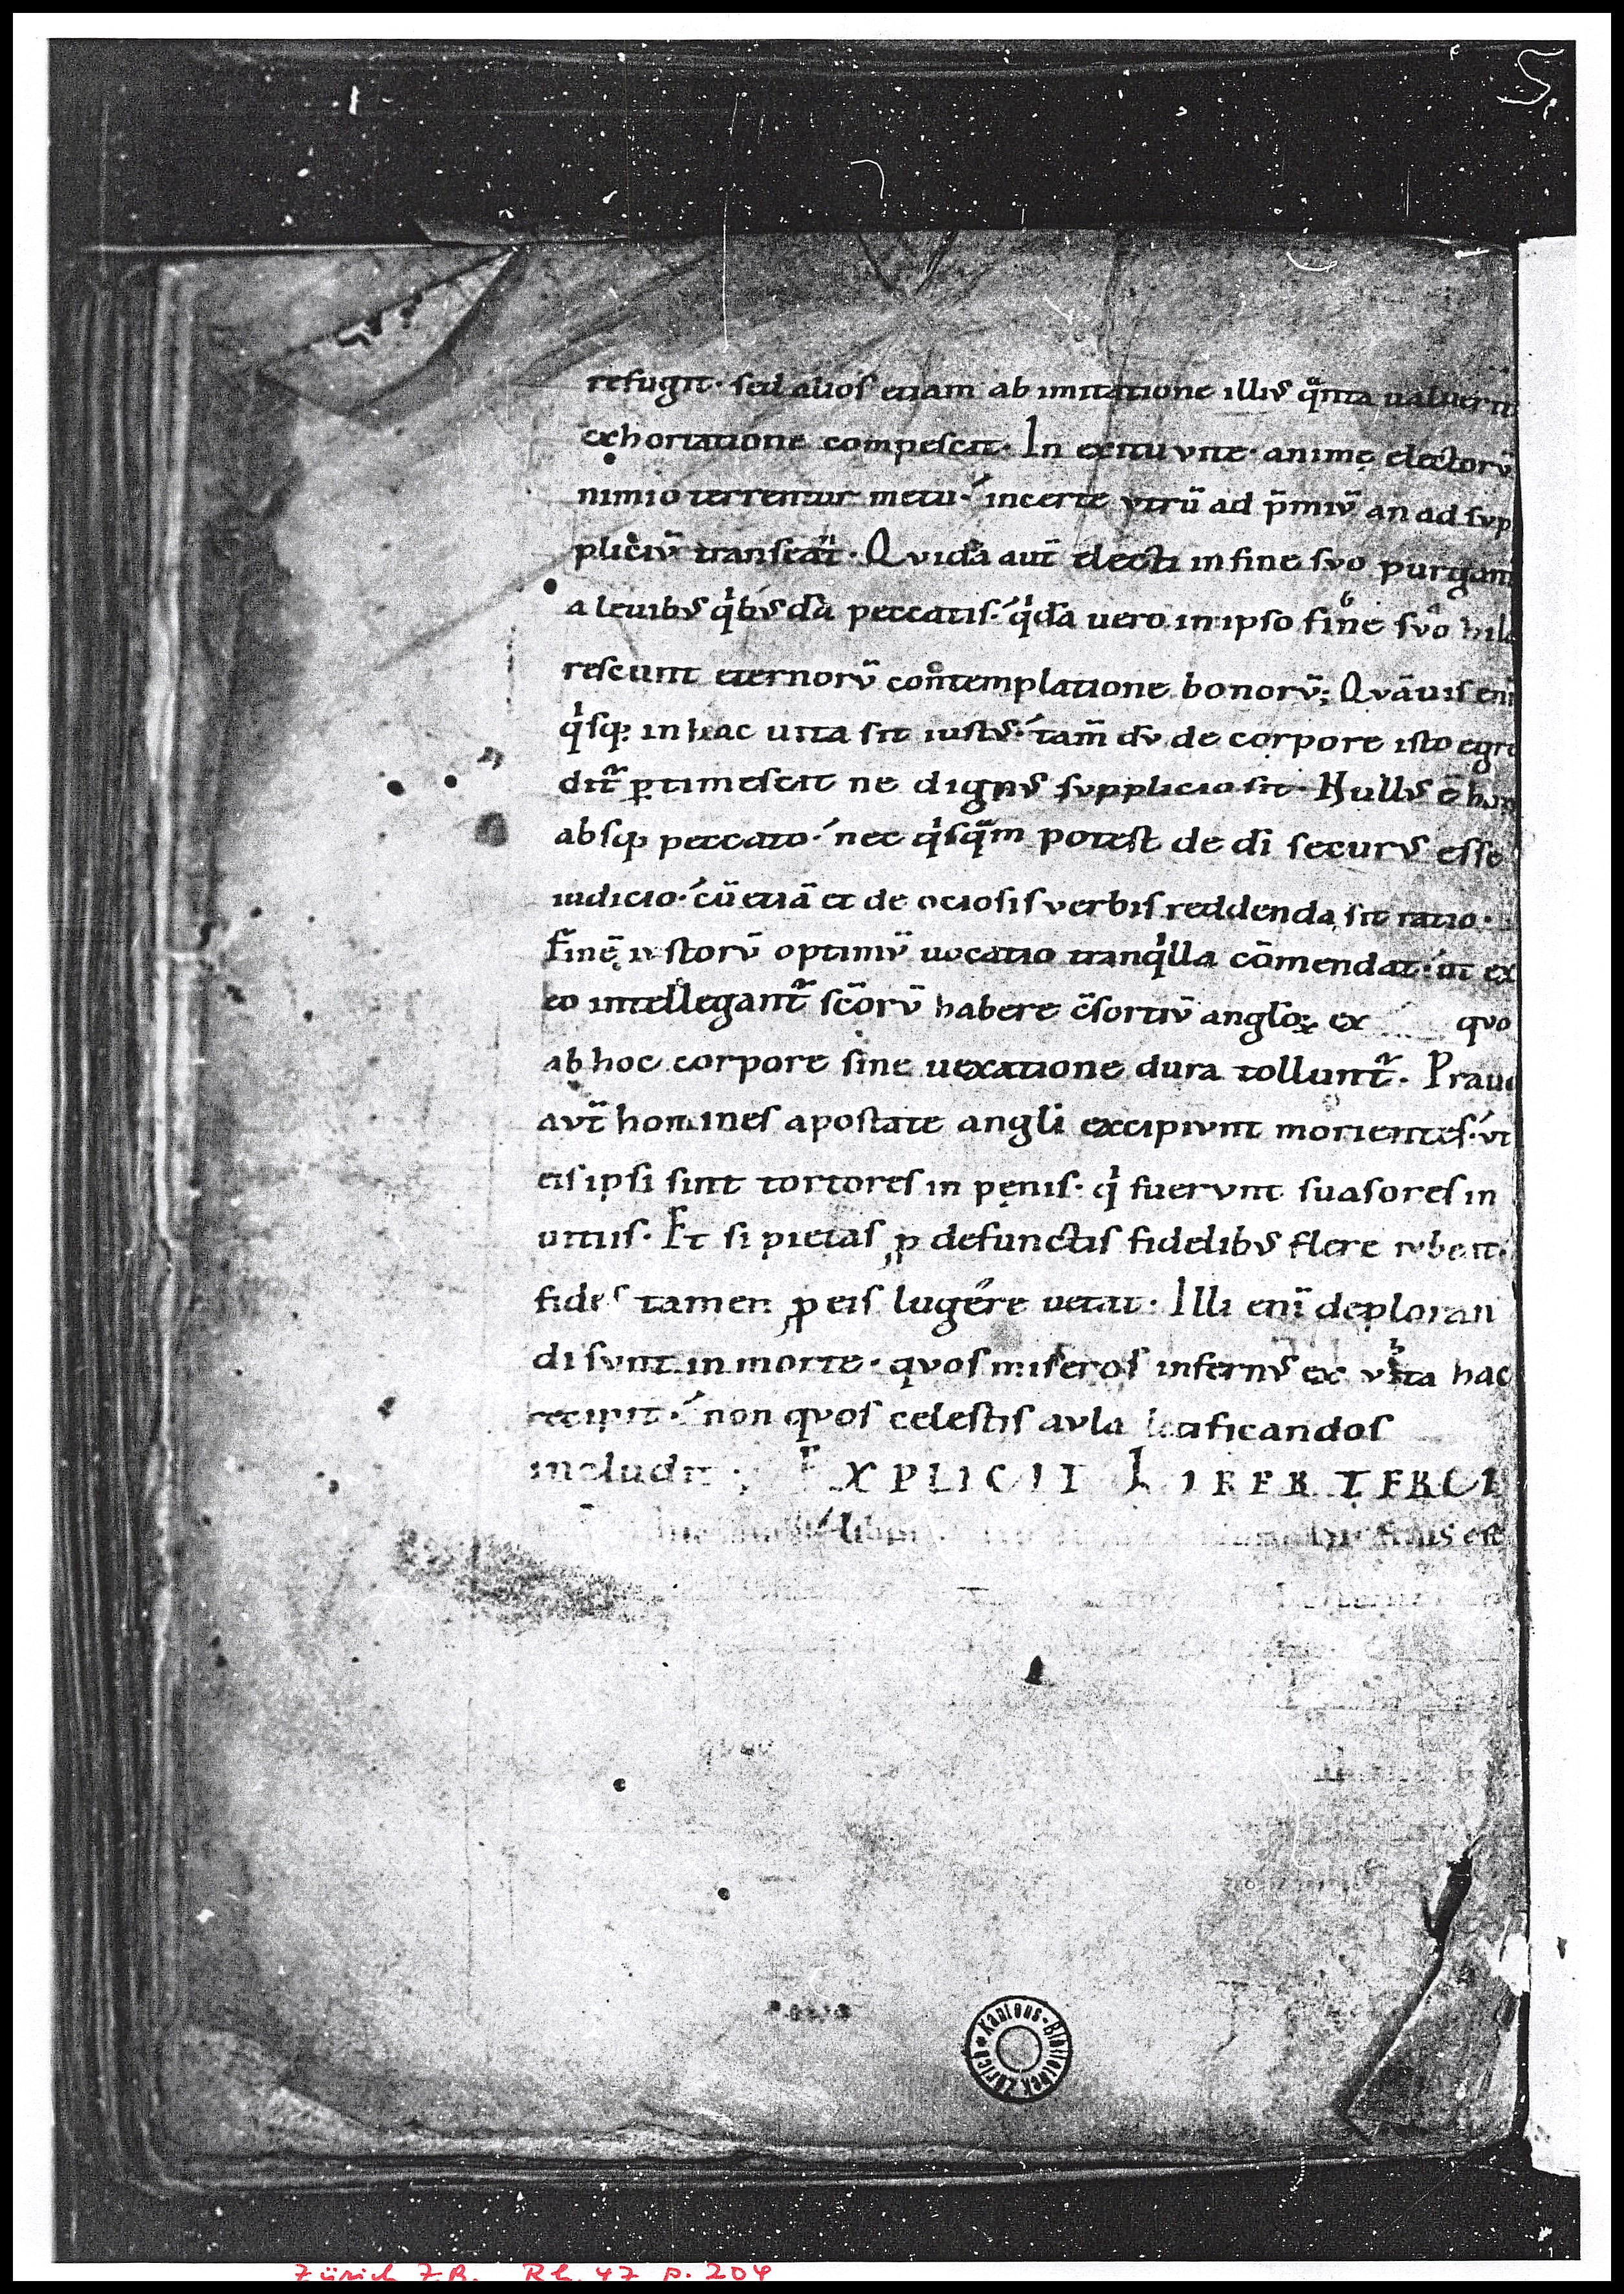 refugit· sed alios etiam ab imitatione illiꝰ q̈nta ualuerit
exhortatione compescit· In exitu vite· animę electorū
nimio terrentur metu· incerte vtrū ad p̄miū an ad sup
pliciū transeāt· Quidā aut̄ electi in fine suo purgant
a leuibꝰ q̇bꝰdā peccatis· q̇dā uero in ipso fine suo hila
rescunt eternorū contemplatione bonorū; Quāuis eni
q̇sq; in hac uita sit iustꝰ· tam̄ dū de corpore isto egre
dit᷑ ꝑtimescit ne dignꝰ supplicio sit· Nullꝰ ē hom
absq; peccato· nec q̇sq̈m potest de di securꝰ esse
iudicio· cū etiā et de ociosis verbis reddenda sit ratio·
Finē iustorū optimū uocatio tranq̇lla cōmendat· ut ex
eo intellegant᷑ sc̄orū habere c̄sortiū angloꝝ ex quo
ab hoc corpore sine uexatione dura tollunt᷑· Prauo
aut̄ homines apostate angli excipiunt morientes· vt
eis ipsi sint tortores in pęnis· q̇ fuerunt suasores in
uitiis· Et si pietas ꝓ defunctis fidelibꝰ flere iubeat·
fides tamen ꝓ eis lugere uetat· Illi enī deploran
di sunt in morte· quos miseros infernꝰ ex vita hac
recipit· non quos celestis aula letificandos
includit; EXPLICIT LIBER TERCI
libri finis est
Kantons-Bibliothek Zürich
Zürich Z.B. Rh. 47 p. 204